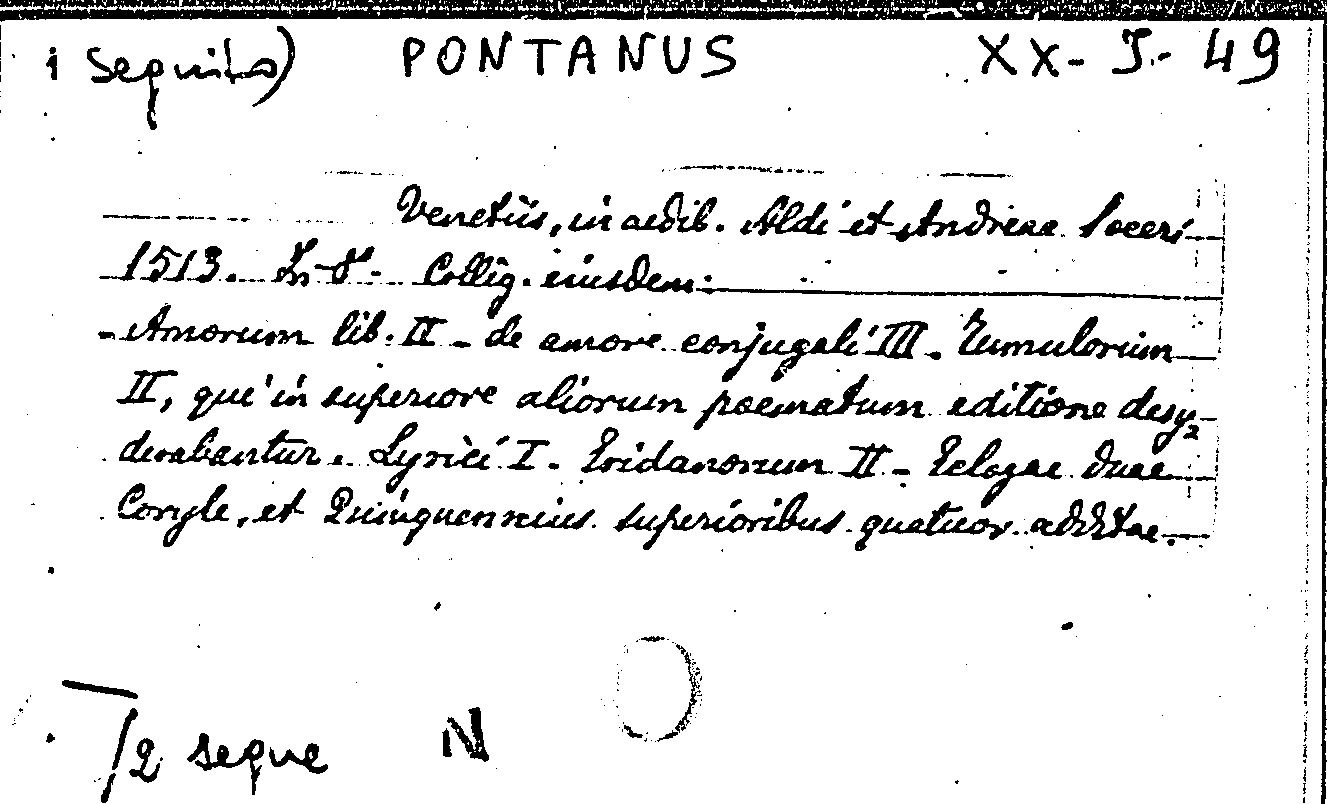 1 seguito) PONTANUS XX-J-49
Venetiis, in aedib. Aldi et Andreae Soceri
1513. In-8°- Collig. eiusdem:
- Amorum lib. II - de amore conjugali III. Tumulorum
II, qui in superiore aliorum poematum editione desy-
derabantur. Lyrici I. Eridanorum II - Eclogae duae
Coryle, et Quinquennius superioribus quatuor additae.
/2 segue N